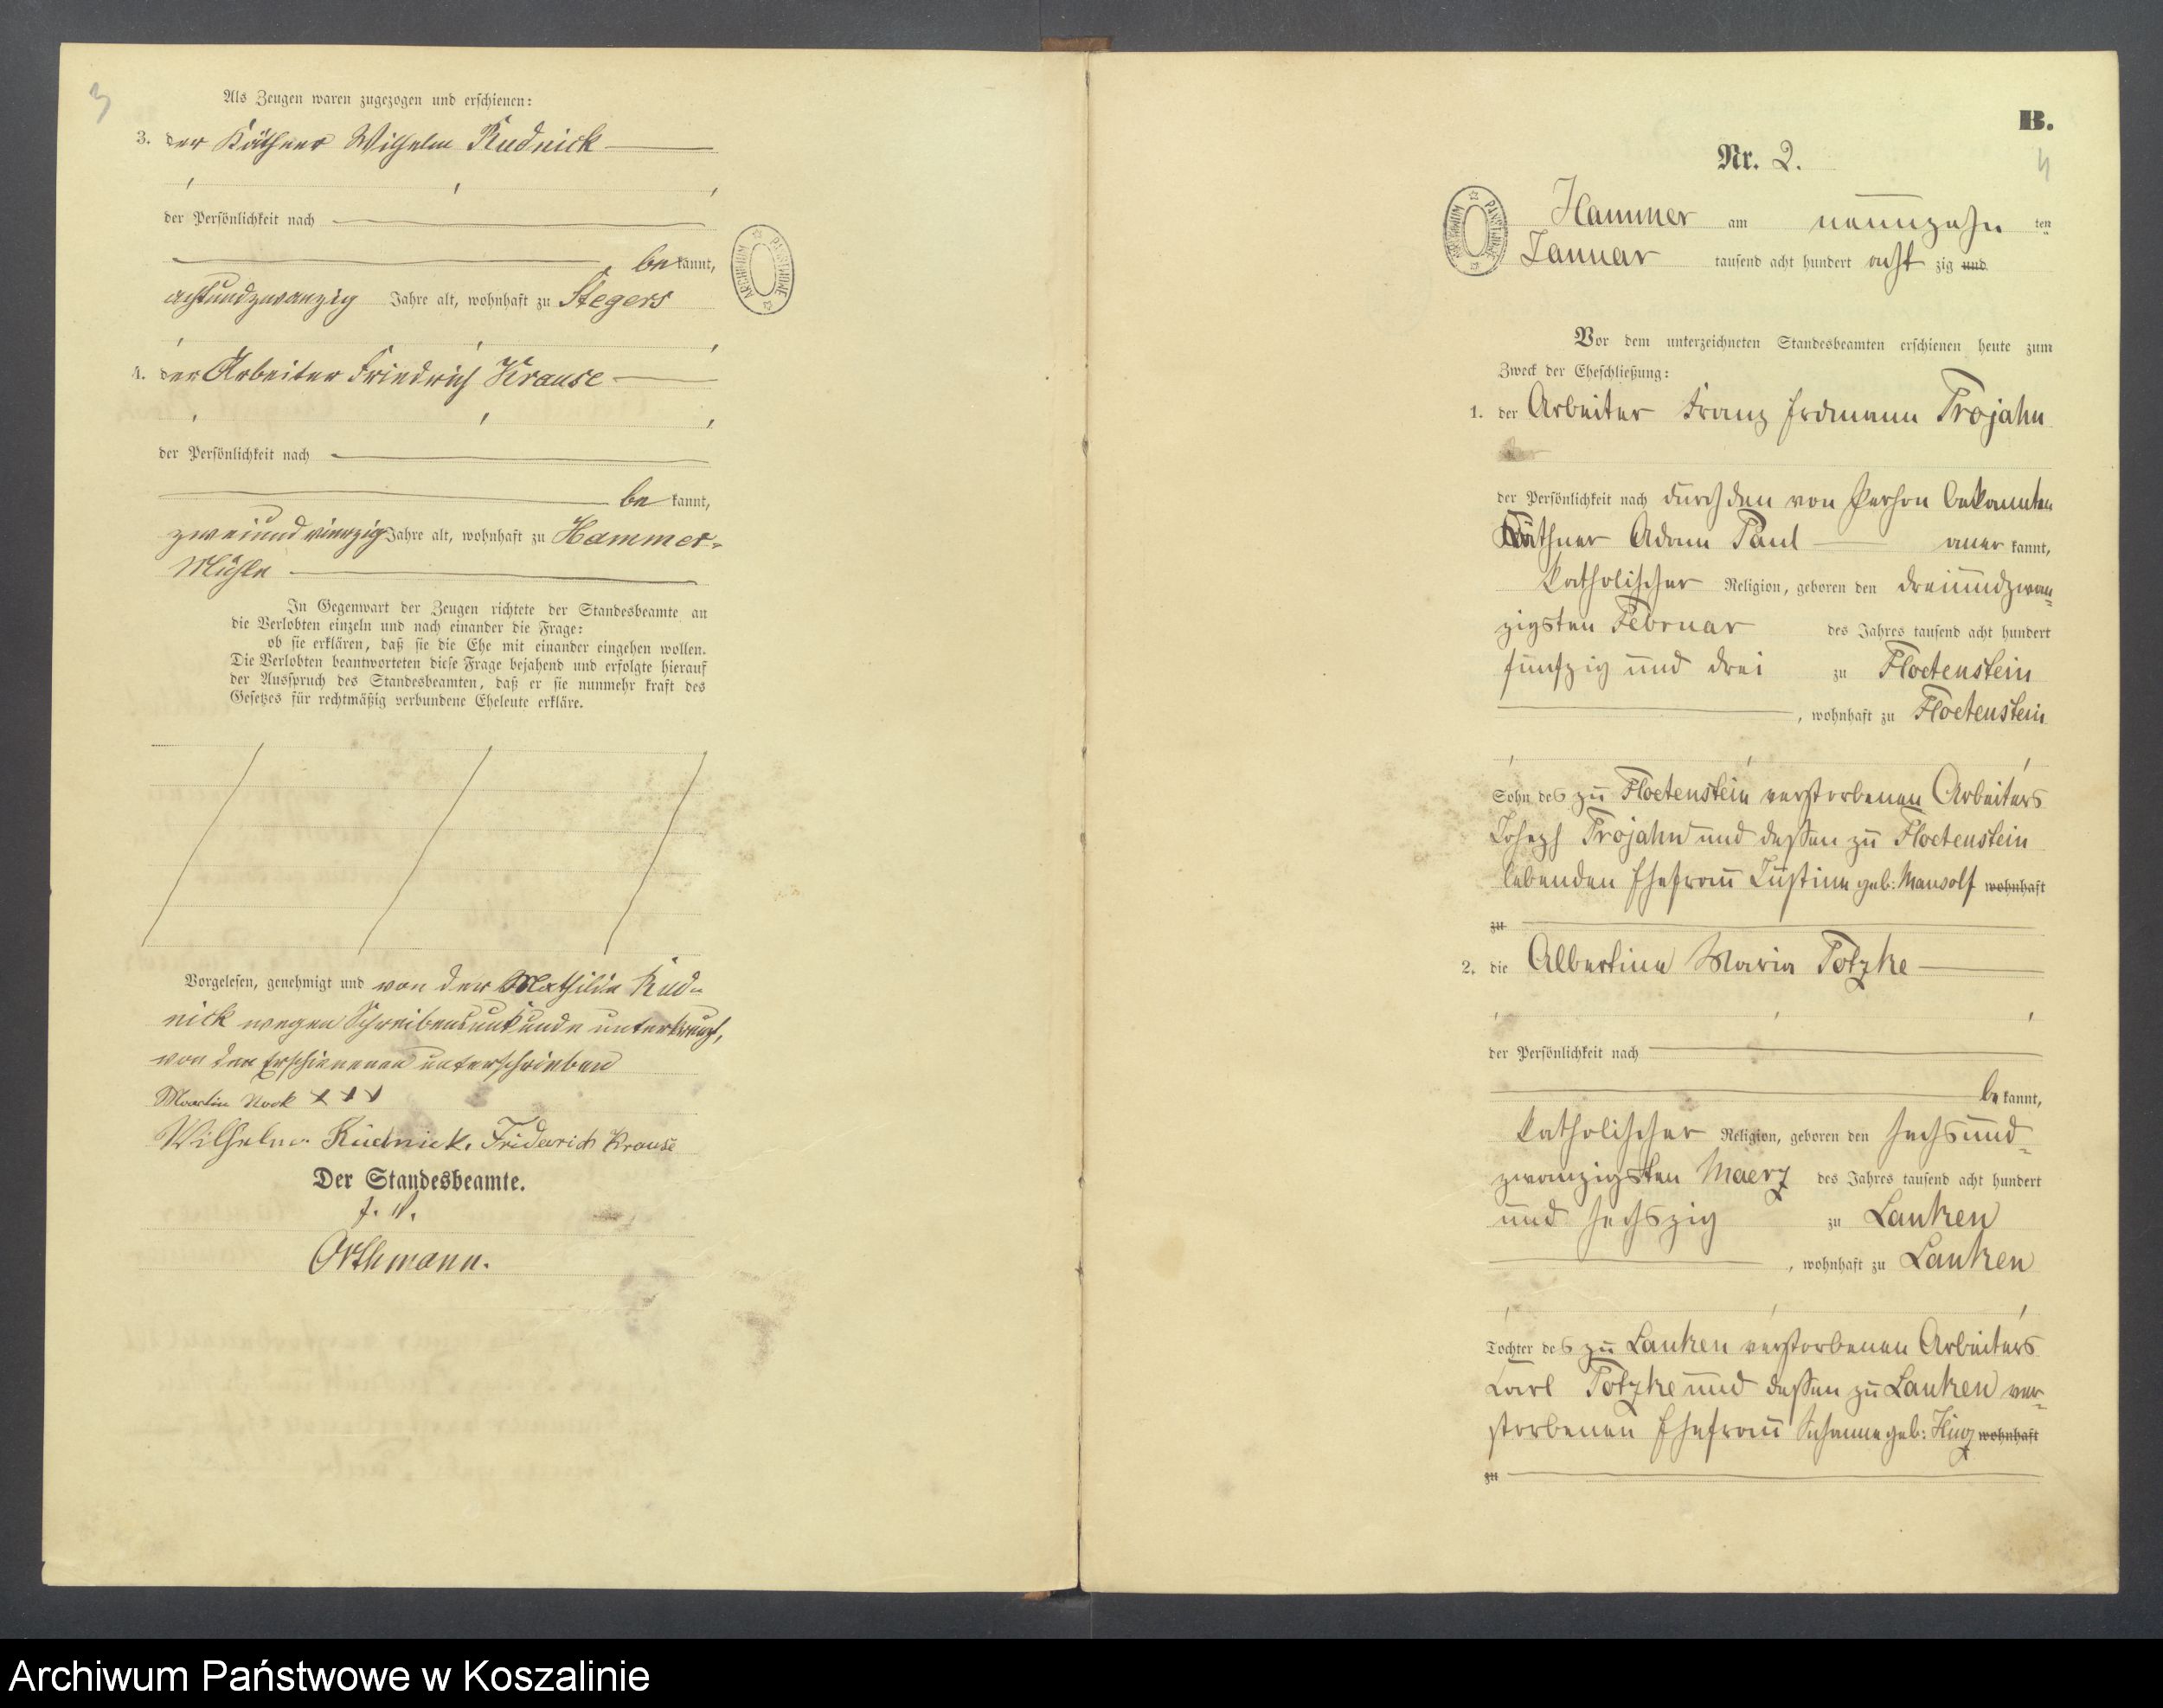 3
Als Zeugen waren zugezogen und erschienen:
3. der Käthner Wilhelm Rudnick
der Persönlichkeit nach
be kannt,
achtundzwanzig Jahre alt, wohnhaft zu Stegers
4. der Arbeiter Friedrich Krause
der Persönlichkeit nach
be kannt,
zweiundvierzig Jahre alt, wohnhaft zu Hammer-
Mühle
In Gegenwart der Zeugen richtete der Standesbeamte an
die Verlobten einzeln und nach einander die Frage:
ob sie erklären, daß sie die Ehe mit einander eingehen wollen.
Die Verlobten beantworteten diese Frage bejahend und erfolgte hierauf
der Ausspruch des Standesbeamten, daß er sie nunmehr kraft des
Gesetzes für rechtmäßig verbundene Eheleute erkläre.
Vorgelesen, genehmigt und von der Mathilde Rud-
nick wegen Schreibensunkunde unterkreuzt,
von den Erschienenen unterschrieben
Martin Nook + + +
Wilhelm Rudnick. Friderich Krause
Der Standesbeamte.
J. V.
Orthmann.
ARCHIWUM PAŃSTWOWE
B.
4
Nr. 2.
ARCHIWUM PAŃSTWOWE
Hammer am neunzehn ten
Januar tausend acht hundert acht zig und
Vor dem unterzeichneten Standesbeamten erschienen heute zum
Zweck der Eheschließung:
1. der Arbeiter Franz Erdmann Trojahn
der Persönlichkeit nach durch den von Person bekannten
Käthner Adam Paul aner kannt,
katholischer Religion, geboren den dreiundzwan-
zigsten Februar des Jahres tausend acht hundert
fünfzig und drei zu Floetenstein
, wohnhaft zu Floetenstein
Sohn des zu Floetenstein verstorbenen Arbeiters
Joseph Trojahn und dessen zu Floetenstein
lebenden Ehefrau Justine geb: Mausolf wohnhaft
zu
2. die Albertine Maria Potzke
der Persönlichkeit nach
be kannt,
katholischer Religion, geboren den sechsund-
zwanzigsten Maerz des Jahres tausend acht hundert
und sechszig zu Lanken
, wohnhaft zu Lanken
Tochter des zu Lanken verstorbenen Arbeiters
Carl Potzke und dessen zu Lanken ver-
storbenen Ehefrau Susanne geb: Hinz wohnhaft
zu
Archiwum Państwowe w Koszalinie